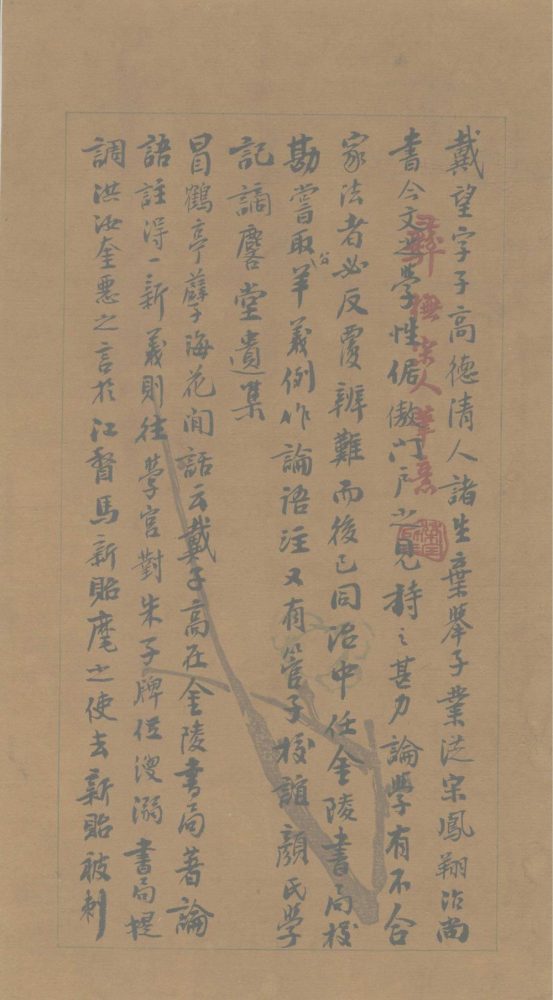 戴望字子高德清人諸生棄舉子業從宋鳳翔治尚
書今文之學性倨傲門戶之見持之甚力論學有不合
家法者必反覆辨難而後已同治中任金陵書局校
勘嘗取公羊義例作論語注又有管子校誼顏氏學
記謫麐堂遺集
冒鶴亭孽海花閒話云戴子高在金陵書局著論
語註得一新義則往學宮對朱子牌位溲溺書局提
調洪汝奎惡之言於江督馬新貽麾之使去新貽被刺
彝撫宋人筆意